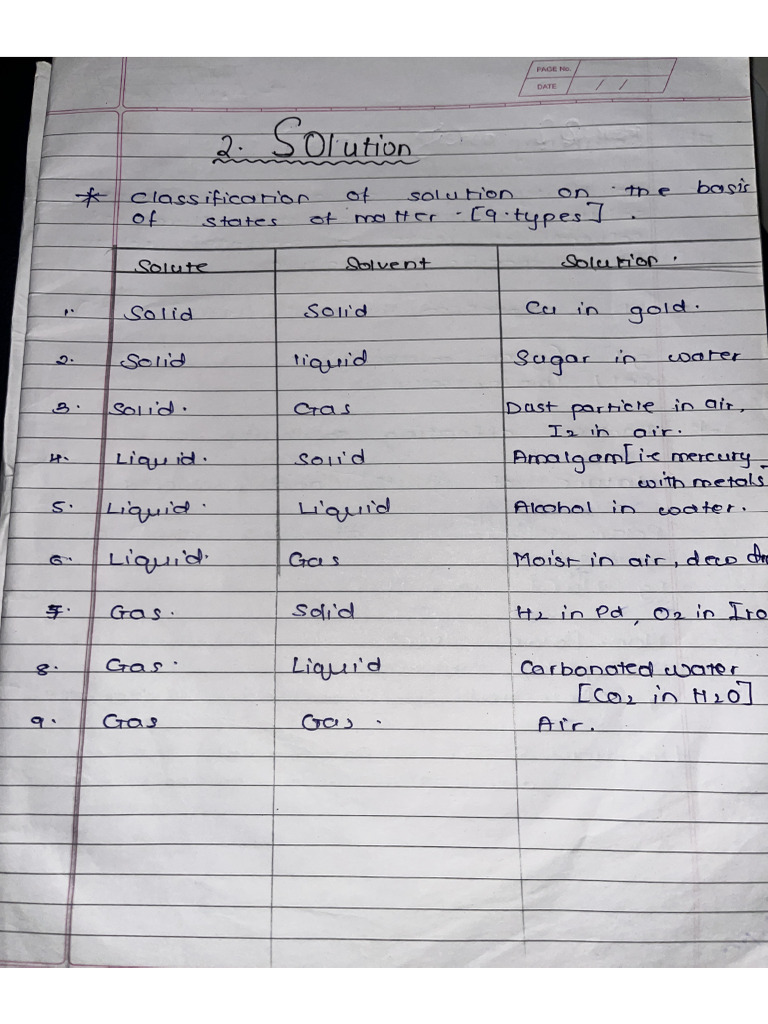 PAGE No.
DATE / /
2. Solution
* Classification of solution on the basis
of states of matter. [9.types].
Solute Solvent Solution.
1. Solid Solid Cu in gold.
2. Solid liquid Sugar in water
3. Solid. Gas Dust particle in air,
I2 in air.
4. Liquid. Solid Amalgam [i.e mercury
with metals
5. Liquid. Liquid Alcohol in water.
6. Liquid. Gas Moist in air,
7. Gas. Solid H2 in Pd, O2 in Iro
8. Gas. Liquid Carbonated water
[CO2 in H2O]
9. Gas Gas. Air.